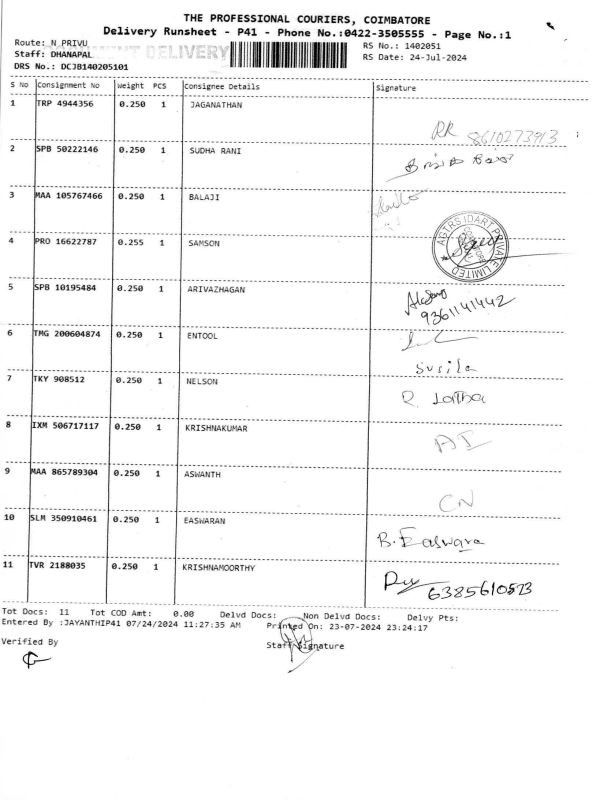 THE PROFESSIONAL COURIERS, COIMBATORE
Delivery Runsheet - P41 - Phone No.:0422-3505555 - Page No.:1
Route: N PRIVU
Staff: DHANAPAL
DRS No.: DCJB140205101
DELIVERY
RS No.: 1402051
RS Date: 24-Jul-2024
S No Consignment No Weight PCS Consignee Details Signature
1 TRP 4944356 0.250 1 JAGANATHAN
RR 8610273913
2 SPB 50222146 0.250 1 SUDHA RANI
3 MAA 105767466 0.250 1 BALAJI
4 PRO 16622787 0.255 1 SAMSON
AGTRSIDART PRIVATE LIMITED
5 SPB 10195484 0.250 1 ARIVAZHAGAN
9361141442
6 TMG 200604874 0.250 1 ENTOOL
Susila
7 TKY 908512 0.250 1 NELSON
R. Latha
8 IXM 506717117 0.250 1 KRISHNAKUMAR
AI
9 MAA 865789304 0.250 1 ASWANTH
CN
10 SLM 350910461 0.250 1 EASWARAN
B. Easwara
11 TVR 2188035 0.250 1 KRISHNAMOORTHY
6385610523
Tot Docs: 11 Tot COD Amt: 0.00 Delvd Docs: Non Delvd Docs: Delvy Pts:
Entered By :JAYANTHIP41 07/24/2024 11:27:35 AM Printed On: 23-07-2024 23:24:17
Verified By Staff Signature